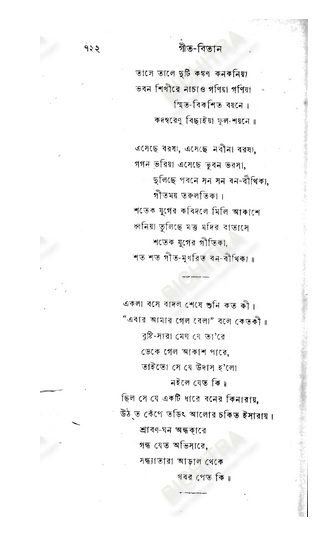 ৭২২ গীত-বিতান
তালে তালে দুটি কঙ্কণ কনকনিয়া
ভবন শিখীরে নাচাও গণিয়া গণিয়া
স্মিত-বিকশিত বয়নে।
কদম্বরেণু বিছাইয়া ফুল-শয়নে॥
এসেছে বরষা, এসেছে নবীনা বরষা,
গগন ভরিয়া এসেছে ভুবন ভরসা,
দুলিছে পবনে সন সন বন-বীথিকা,
গীতময় তরুলতিকা।
শতেক যুগের কবিদলে মিলি আকাশে
ধ্বনিয়া তুলিছে মত্ত মদির বাতাসে
শতেক যুগের গীতিকা,
শত শত গীত-মুখরিত বন-বীথিকা॥
একলা বসে বাদল শেষে শুনি কত কী।
"এবার আমার গেল বেলা" বলে কেতকী॥
বৃষ্টি-সারা মেঘ যে তা'রে
ডেকে গেল আকাশ পারে,
তাইতো সে যে উদাস হ'লো
নইলে যেত কি॥
ছিল সে যে একটি ধারে বনের কিনারায়,
উঠ্‌ত কেঁপে তড়িৎ আলোর চকিত ইসারায়।
শ্রাবণ-ঘন অন্ধকারে
গন্ধ যেত অভিসারে,
সন্ধ্যাতারা আড়াল থেকে
খবর পেত কি॥